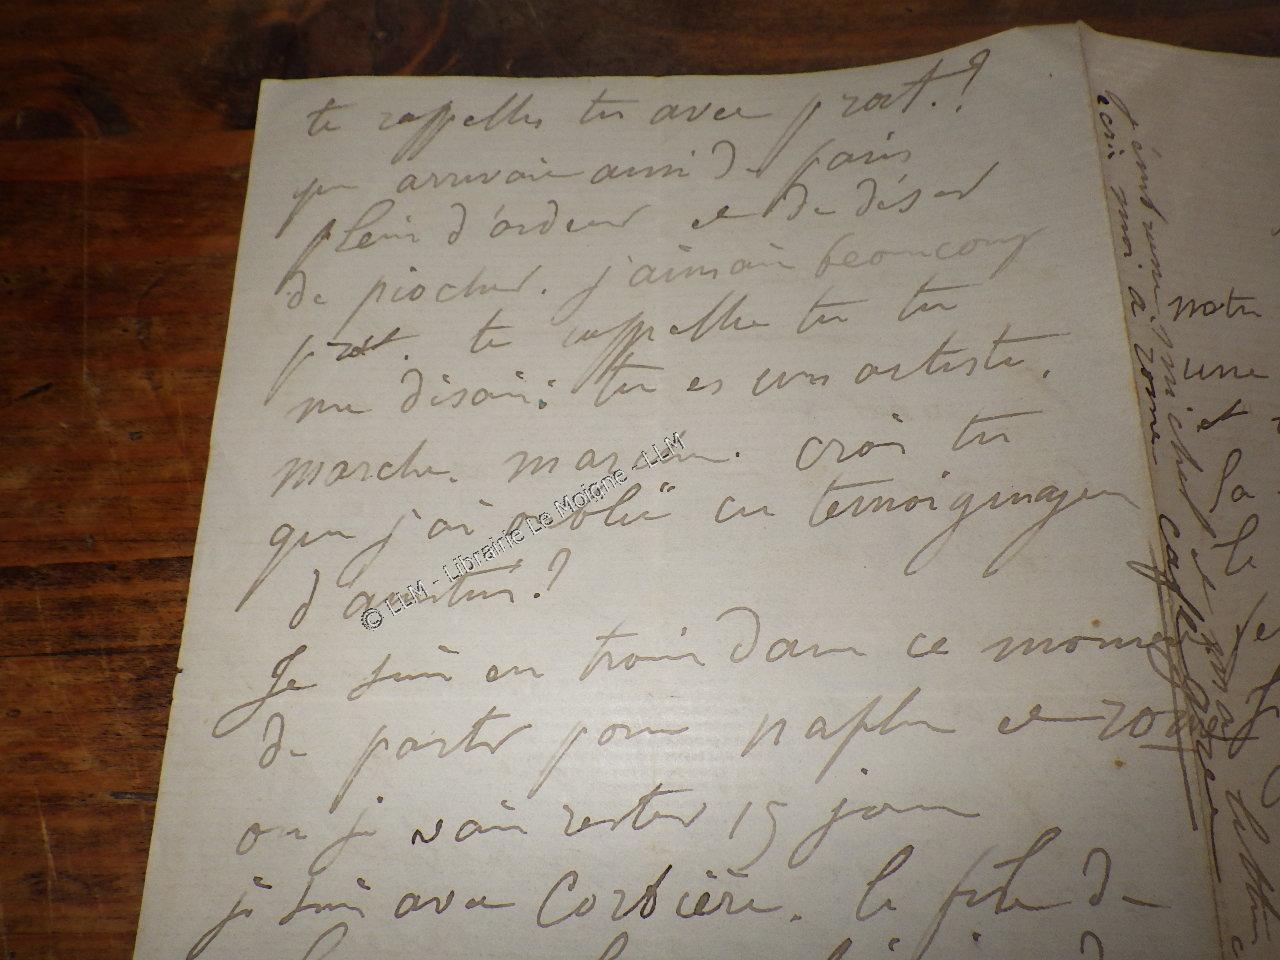 te rappelles tu avec prat.?
qui arrivait aussi de paris
plein d'ardeur et de désir
de piocher. j'aimais beaucoup
prat. te rappelles tu tu
me disais: tu es un artiste.
marche. marche. crois tu
que j'ai oublié ces temoignages
d'amitié?
Je suis en train dans ce moment
de partir pour naples et rome
ou je vais rester 15 jours
je suis avec Corbière. le fils de
ecris moi à rome caffè greco
notre
une
et
la
le
© LLM - Librairie Le Moigne - LLM